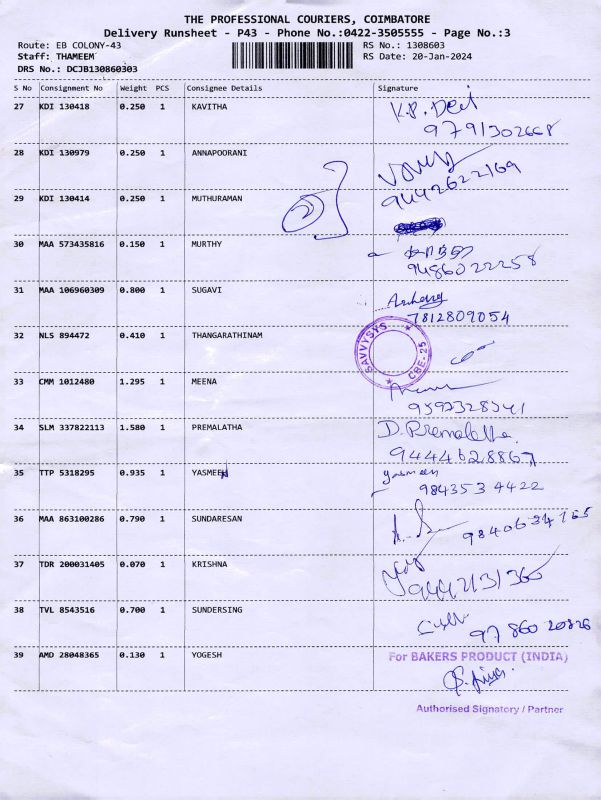 THE PROFESSIONAL COURIERS, COIMBATORE
Delivery Runsheet - P43 - Phone No.:0422-3505555 - Page No.:3
Route: EB COLONY-43 RS No.: 1308603
Staff: THAMEEM RS Date: 20-Jan-2024
DRS No.: DCJB130860303
S No Consignment No Weight PCS Consignee Details Signature
27 KDI 130418 0.250 1 KAVITHA K.P. Devi
9791302668
28 KDI 130979 0.250 1 ANNAPOORANI
9442622169
29 KDI 130414 0.250 1 MUTHURAMAN
30 MAA 573435816 0.150 1 MURTHY
9486022258
31 MAA 106960309 0.800 1 SUGAVI
7812809054
32 NLS 894472 0.410 1 THANGARATHINAM
SAVVYSYS CBE-25
33 CMM 1012480 1.295 1 MEENA
34 SLM 337822113 1.580 1 PREMALATHA D. Premalatha
9444628867
35 TTP 5318295 0.935 1 YASMEEN yasmeen
9843534422
36 MAA 863100286 0.790 1 SUNDARESAN
9840634765
37 TDR 200031405 0.070 1 KRISHNA
9442131360
38 TVL 8543516 0.700 1 SUNDERSING
9786020826
39 AMD 28048365 0.130 1 YOGESH For BAKERS PRODUCT (INDIA)
Authorised Signatory / Partner